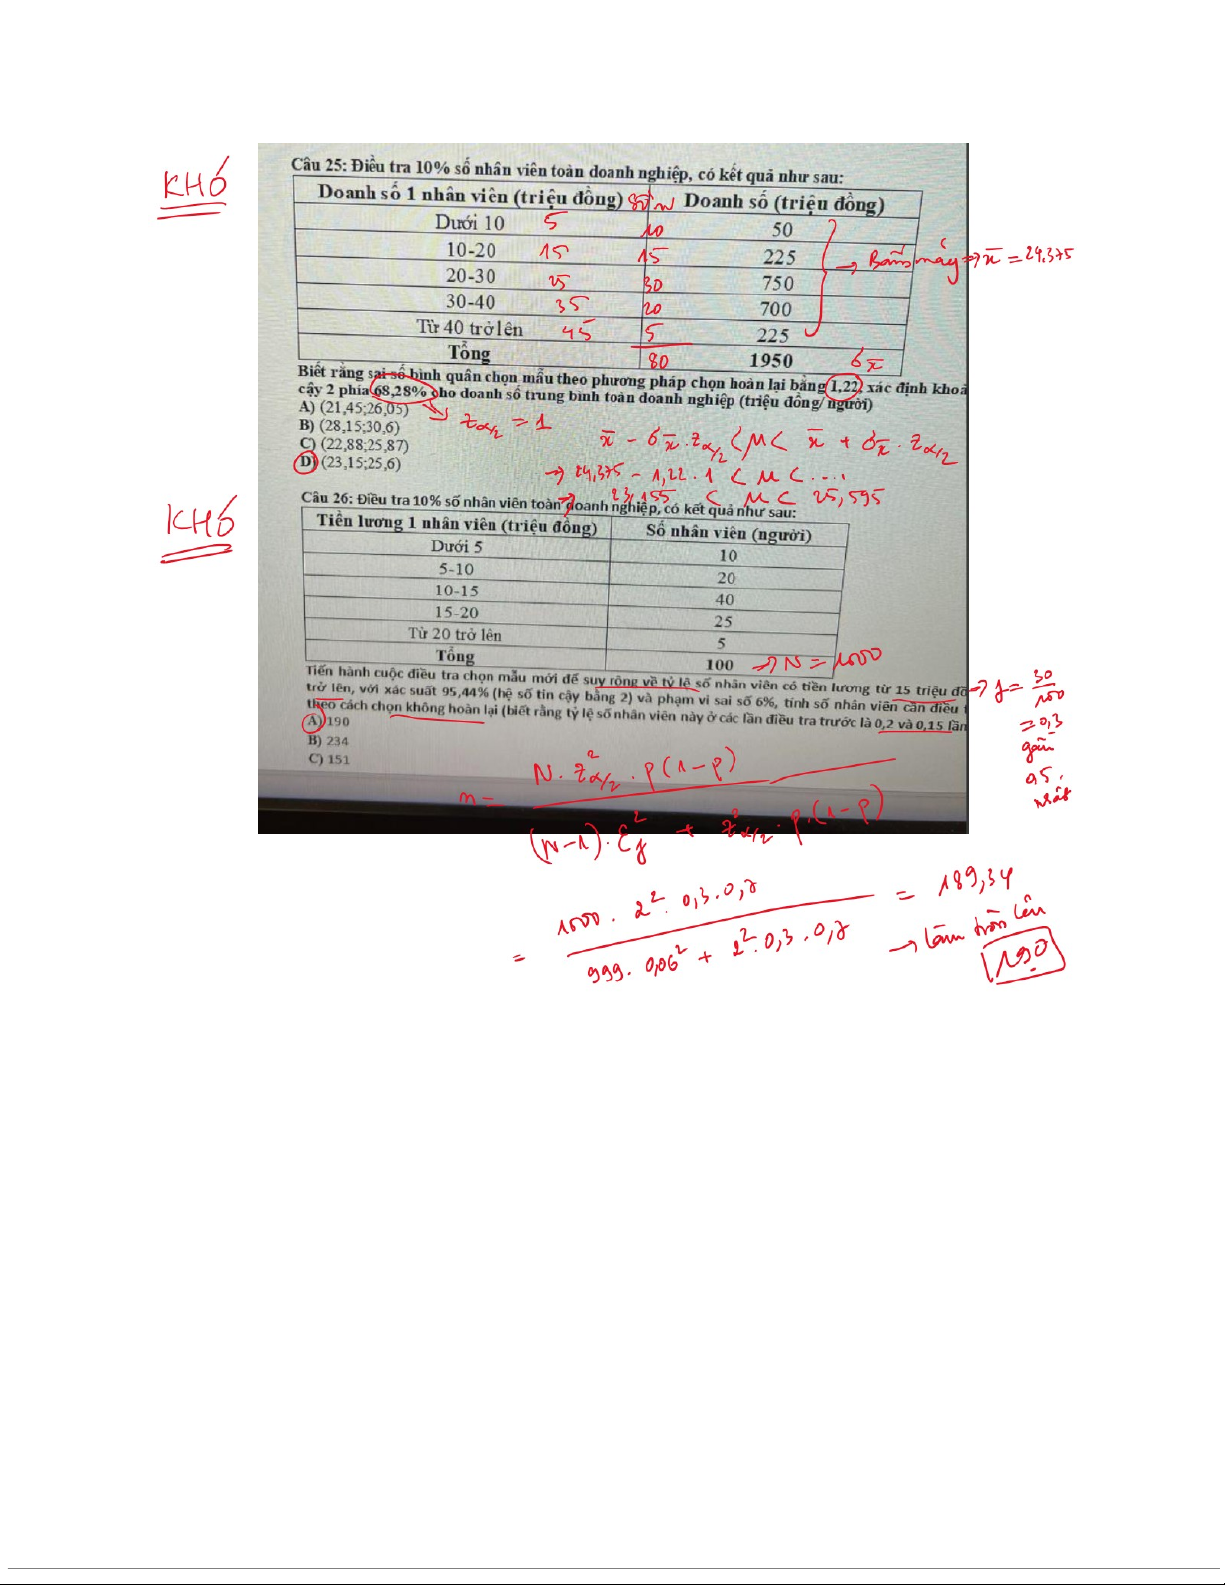 KHÓ
Câu 25: Điều tra 10% số nhân viên toàn doanh nghiệp, có kết quả như sau:
Doanh số 1 nhân viên (triệu đồng) Doanh số (triệu đồng)
Dưới 10 5 10 50
10-20 15 15 225
20-30 25 30 750
30-40 35 20 700
Từ 40 trở lên 45 5 225
Tổng 80 1950
→ Bấm máy ⇒ x̄ = 24,375
Biết rằng sai số bình quân chọn mẫu theo phương pháp chọn hoàn lại bằng 1,22, xác định khoả
cậy 2 phía 68,28% cho doanh số trung bình toàn doanh nghiệp (triệu đồng/ người)
A) (21,45;26,05)
B) (28,15;30,6)
C) (22,88;25,87)
D) (23,15;25,6)
σx̄
→ zα/2 = 1
x̄ - σx̄.zα/2 < μ < x̄ + σx̄.zα/2
→ 24,375 - 1,22.1 < μ < ....
→ 23,155 < μ < 25,595
KHÓ
Câu 26: Điều tra 10% số nhân viên toàn doanh nghiệp, có kết quả như sau:
Tiền lương 1 nhân viên (triệu đồng) Số nhân viên (người)
Dưới 5 10
5-10 20
10-15 40
15-20 25
Từ 20 trở lên 5
Tổng 100 → N = 1000
Tiến hành cuộc điều tra chọn mẫu mới để suy rộng về tỷ lệ số nhân viên có tiền lương từ 15 triệu đồ
trở lên, với xác suất 95,44% (hệ số tin cậy bằng 2) và phạm vi sai số 6%, tính số nhân viên cần điều t
theo cách chọn không hoàn lại (biết rằng tỷ lệ số nhân viên này ở các lần điều tra trước là 0,2 và 0,15 lần
A) 190
B) 234
C) 151
→ f = 30/100
= 0,3
gần
0,5
nhất
n = N.z²α/2.p(1-p) / (N-1).ε²f + z²α/2.p.(1-p)
= 1000.2².0,3.0,7 / 999.0,06² + 2².0,3.0,7 = 189,34
→ làm tròn lên
190